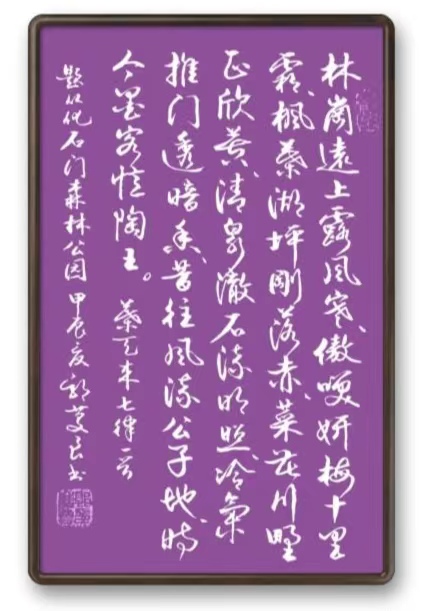 林岗遠上露风寒、傲嗅妍梅十里
霜、枫叶湖坪剛落赤、菜花川野
正欣黄、清泉澈石流明照、冷氣
推门透暗香、昔往风流公子地、时
今墨客忆陶王。 蔡元末七律一首
题从化石门森林公园 甲辰夏 书